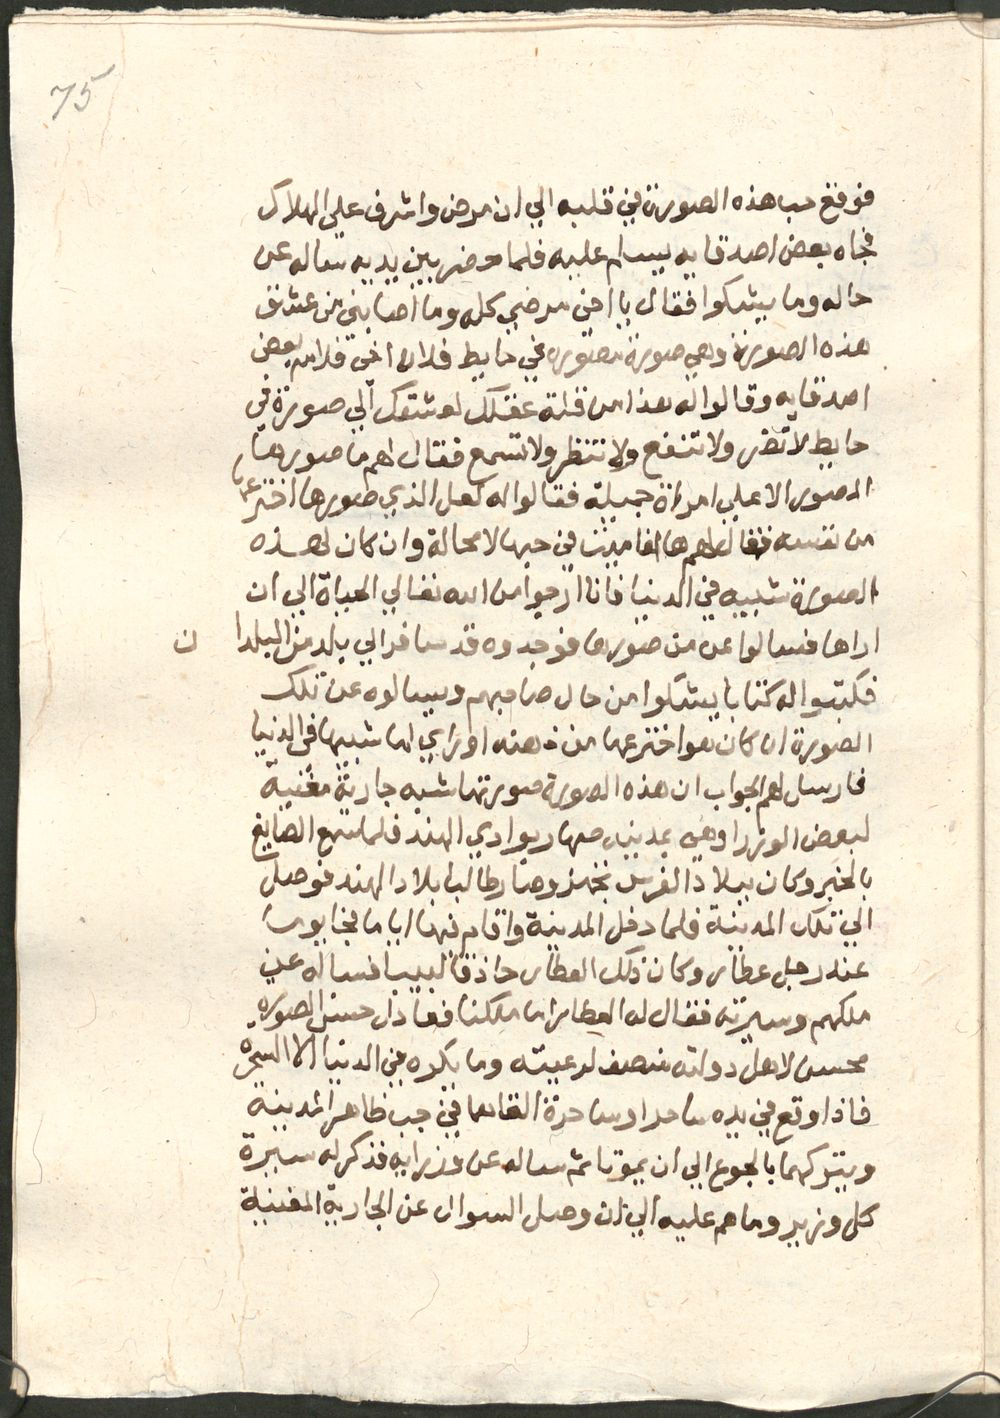 75
فوقع حب هذه الصورة في قلبه الي ان مرض واشرف علي الهلاك
فجاه بعض اصدقايه يسلم عليه فلما حضر بين يديه ساله عن
حاله وما يشكوا فقال يا اخي مرضي كله وما اصابني من عشق
هذه الصورة وهي صورة مصورة في حايط فلان اخي فلامه بعض
اصدقايه وقالوا له هذا من قلة عقلك لعشقك الي صورة في
حايط لا تضر ولا تنفع ولا تنظر ولا تسمع فقال لهم ما صورها
المصور الا علي امراة جميلة فقالوا له لعل الذي صورها اخترعها
من نفسه فقال لهم ها انا ميت في حبها لا محالة وان كان لهذه
الصورة شبيه في الدنيا فانا ارجوا من الله تعالي الحياة الي ان
اراها فسالوا عن من صورها فوجدوه قد سافر الي بلد من البلدا ن
فكتبوا له كتابا يشكوا من حال صاحبهم وسالوه عن تلك
الصورة ان كان هو اخترعها من ذهنه او راي لها شبيها في الدنيا
فارسل لهم الجواب ان هذه الصورة صورتها شبه جارية مغنية
لبعض الوزرا وهي بمدينة صهار بوادي الهند فلما سمع الصايغ
بالخبر وكان ببلاد الفرس تجهز وصار طالبا بلاد الهند فوصل
الي تلك المدينة فلما دخل المدينة واقام فيها اياما فجا يوما
عند رجل عطار وكان ذلك العطار حاذقا لبيبا فساله عن
ملكهم وسيرته فقال له العطار اما ملكنا فعادل حسن الصورة
محسن لاهل دولته منصف لرعيته وما يكره في الدنيا الا السحرة
فاذا وقع في يده ساحرا وساحرة القاهما في جب ظاهر المدينة
ويتركهما بالجوع الي ان يموتا ثم ساله عن وزرايه فذكر له سيرة
كل وزير وما هم عليه الي ان وصل السوال عن الجارية المغنية